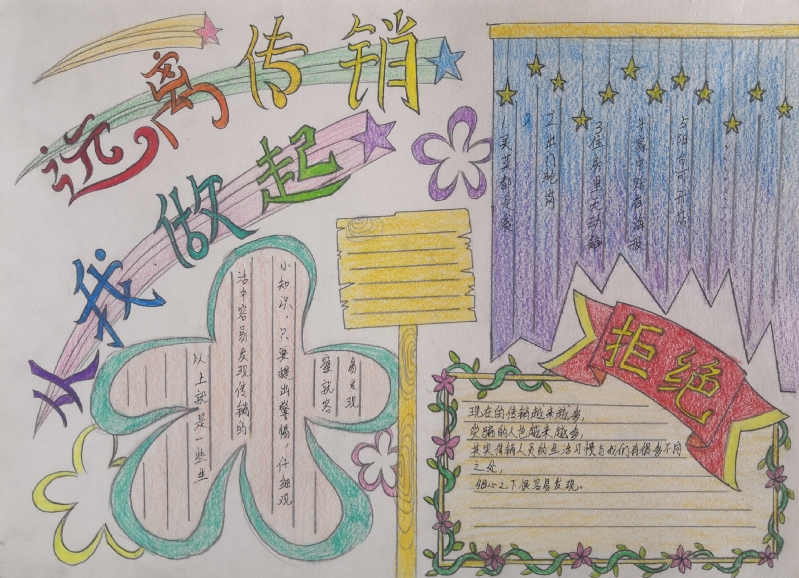 远离传销
从我做起
拒绝
现在的传销越来越多,
受骗的人也越来越多,
其实传销人员的生活习惯与我们有很多不同
之处,
细心之下很容易发现。
2出门
3住房里无动静
4家中贴有海报
5阳台可开
以上就是一些生
活中容易发现传销的
小知识,只要提出警惕,仔细观
察就容
易发现